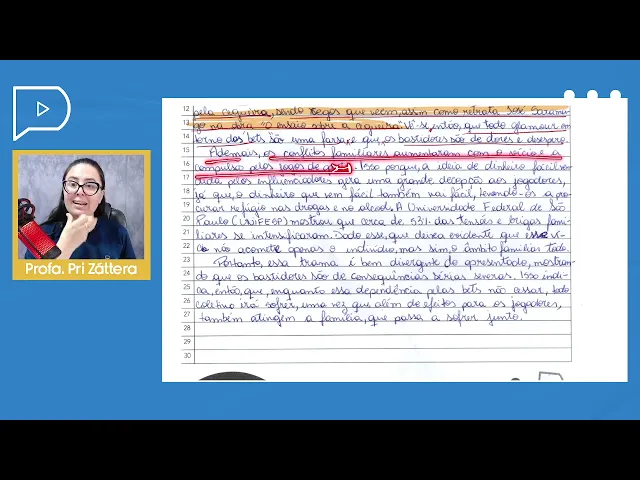 12 pela cegueira, sendo cegos que veem, assim como retrata José Sarama-
13 go na obra "O ensaio sobre a cegueira". Vê-se, então, que todo glamour em
14 torno das bets são uma farsa, e que, os bastidores são de dores e desespero.
15 Ademais, os conflitos familiares aumentaram com o vício e a
16 compulsão pelos jogos de azar. Isso porque, a ideia de dinheiro fácil
17 pelos influenciadores gera uma grande decepção aos jogadores,
18 já que, o dinheiro que vem fácil também vai fácil, levando-os a pro-
19 curar refúgio nas drogas e no alcool. A Universidade Federal de São
20 Paulo (UNIFESP) mostrou que cerca de 53% das tensões e brigas fami-
21 liares se intensificaram. Dado esse, que deixa evidente que esse ví-
22 cio não acomete apenas o indivíduo, mas sim, o âmbito familiar todo.
23 Portanto, essa trama é bem divergente do apresentado, mostran-
24 do que os bastidores são de consequências sérias severas. Isso indi-
25 ca, então, que, enquanto essa dependência pelas bets não cessar, todo
26 coletivo irá sofrer, uma vez que além de efeitos para os jogadores,
27 também atingem a família, que passa a sofrer junto.
28
29
30
Profa. Pri Záttera